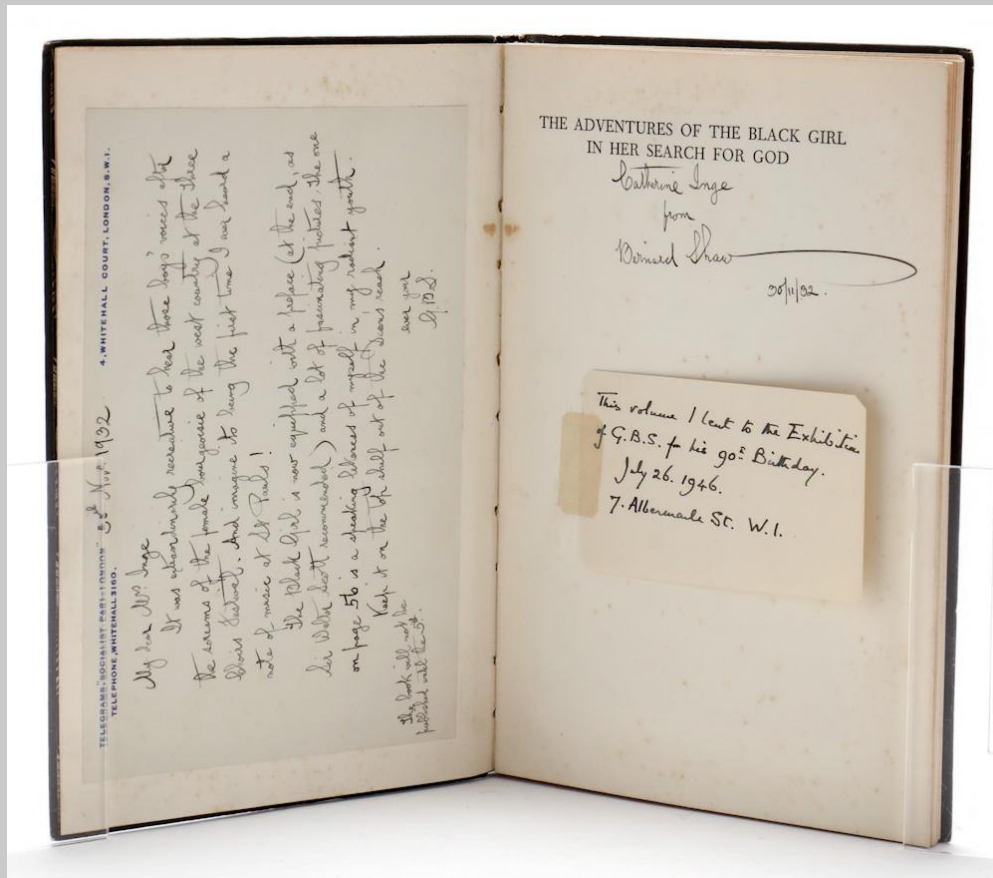 4, WHITEHALL COURT, LONDON, S.W.1.
TELEGRAMS, "SOCIALIST, PARL-LONDON"
TELEPHONE, WHITEHALL 3160.
30th Nov. 1932
My dear Mrs Inge
It was extraordinarily recreative to hear those boys' voices after
the screams of the female bourgeoisie of the west country at the Three
Choirs Festival. And imagine its being the first time I ever heard a
note of music at St Pauls!
The Black Girl is now equipped with a preface (at the end, as
Sir Walter Scott recommended) and a lot of fascinating pictures. The one
on page 56 is a speaking likeness of myself in my radiant youth.
Keep it on the top shelf out of the Dean's reach.
ever yours
G.B.S.
The book will not be
published until the 5th.
THE ADVENTURES OF THE BLACK GIRL
IN HER SEARCH FOR GOD
Catherine Inge
from
Bernard Shaw
30/11/32.
This volume I lent to the Exhibition
of G.B.S. for his 90th Birthday.
July 26. 1946.
7. Albermarle St. W.1.